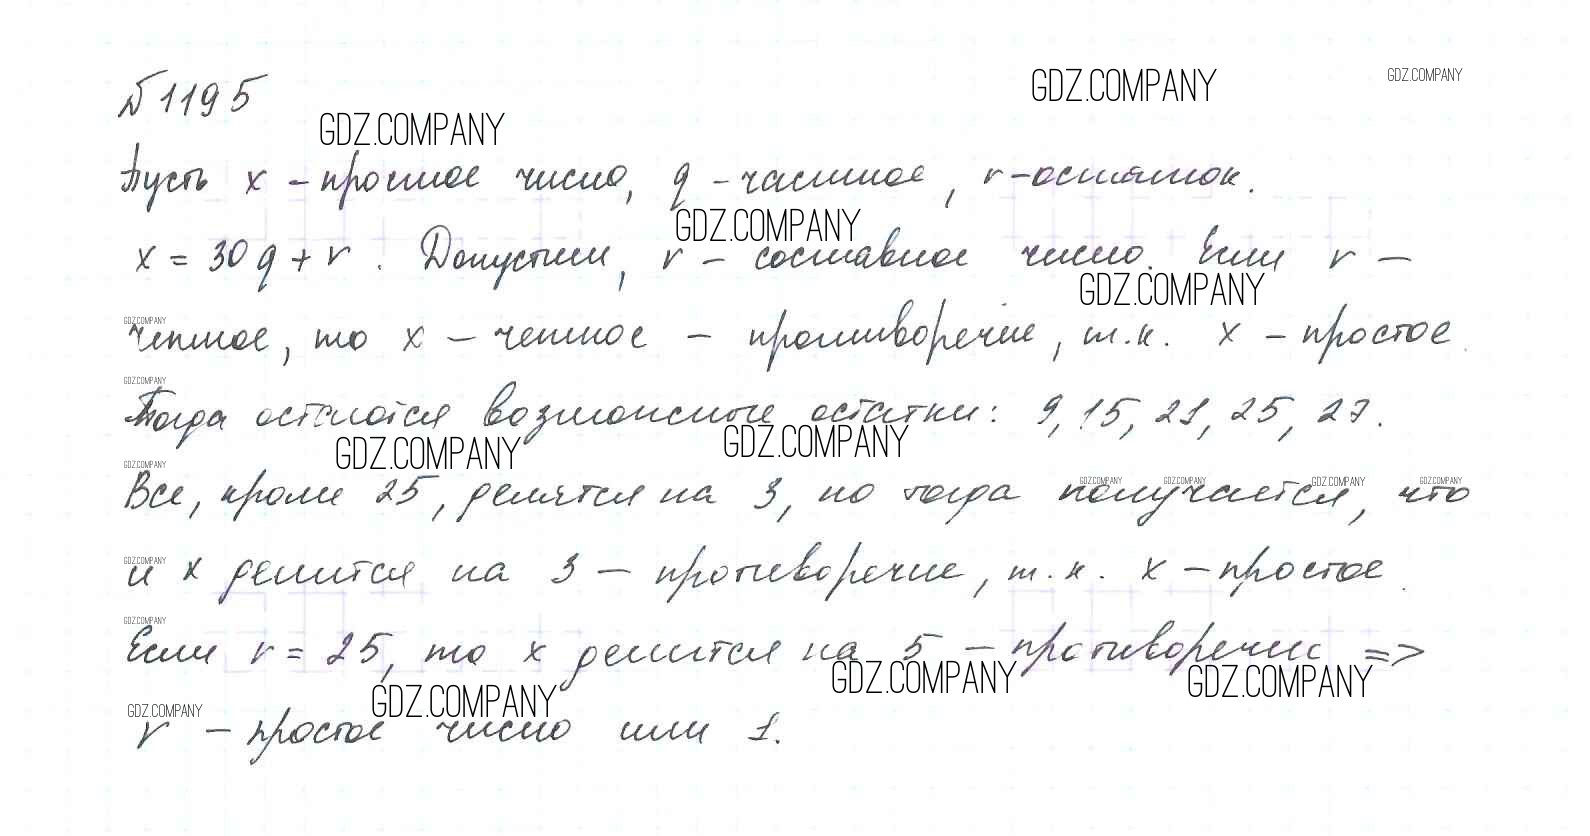 GDZ.COMPANY
GDZ.COMPANY
№1195
GDZ.COMPANY
Пусть x – простое число, q – частное, r – остаток.
GDZ.COMPANY
x = 30q + r. Допустим, r – составное число. Если r –
GDZ.COMPANY
GDZ.COMPANY
четное, то x – четное – противоречие, т.к. x – простое.
GDZ.COMPANY
Тогда остаются возможные остатки: 9, 15, 21, 25, 27.
GDZ.COMPANY
GDZ.COMPANY
GDZ.COMPANY
GDZ.COMPANY
GDZ.COMPANY
GDZ.COMPANY
GDZ.COMPANY
Все, кроме 25, делятся на 3, но тогда получается, что
GDZ.COMPANY
и x делится на 3 – противоречие, т.к. x – простое.
GDZ.COMPANY
Если r = 25, то x делится на 5 – противоречие =>
GDZ.COMPANY
GDZ.COMPANY
GDZ.COMPANY
GDZ.COMPANY
r – простое число или 1.